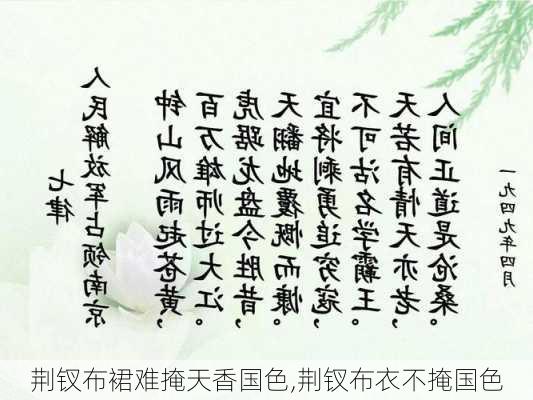 七律
人民解放军占领南京
钟山风雨起苍黄，
百万雄师过大江。
虎踞龙盘今胜昔，
天翻地覆慨而慷。
宜将剩勇追穷寇，
不可沽名学霸王。
天若有情天亦老，
人间正道是沧桑。
一九四九年四月
荆钗布裙难掩天香国色,荆钗布衣不掩国色